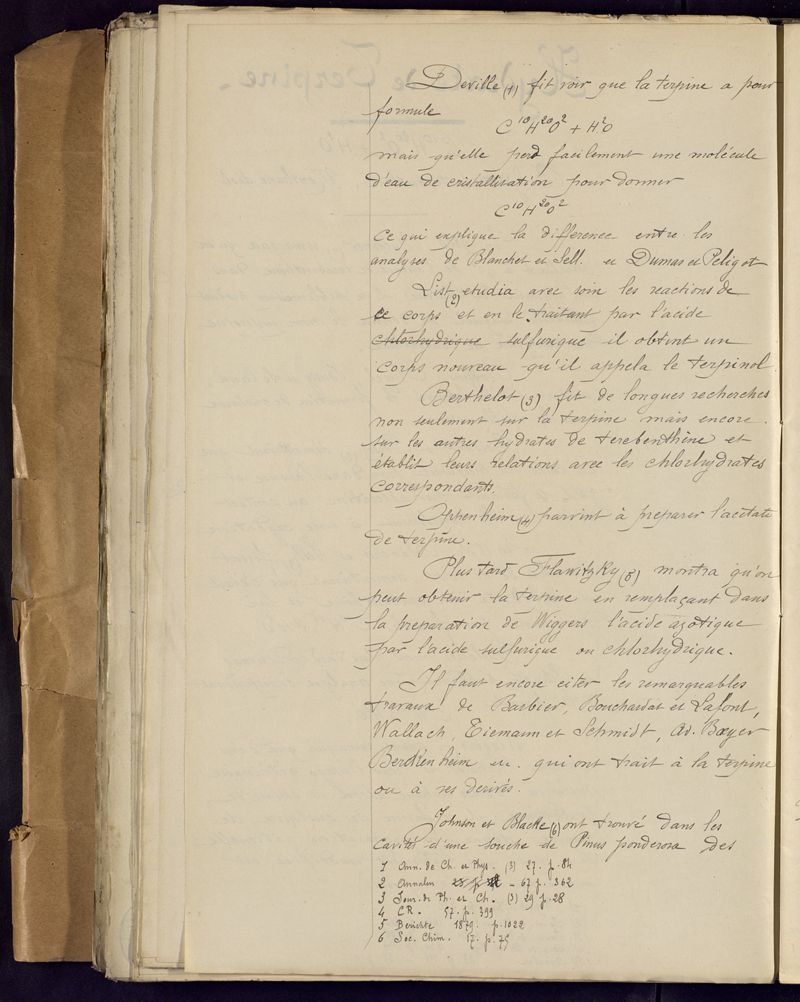 Deville (1) fit voir que la terpine a pour
formule
C¹⁰H²⁰O² + H²O
mais qu'elle perd facilement une molécule
d'eau de cristallisation pour donner
C¹⁰H²⁰O²
ce qui explique la difference entre les
analyses de Blanchet et Sell. et Dumas et Peligot
List (2) etudia avec soin les reactions de
ce corps et en le traitant par l'acide
chlorhydrique sulfurique il obtint un
corps nouveau qu'il appela le terpinol.
Berthelot (3) fit de longues recherches
non seulement sur la terpine mais encore
sur les autres hydrates de terebenthène et
établit leurs relations avec les chlorhydrates
correspondants.
Oppenheim (4) parvint à preparer l'acétate
de terpine.
Plus tard Flawitzky (5) montra qu'on
peut obtenir la terpine en remplaçant dans
la preparation de Wiggers l'acide azotique
par l'acide sulfurique ou chlorhydrique.
Il faut encore citer les remarquables
travaux de Barbier, Bouchardat et Lafont,
Wallach, Tiemann et Schmidt, Ad. Bæyer
Berckenheim etc. qui ont trait à la terpine
ou à ses derivés.
Johnson et Blacke (6) ont trouvé dans les
cavités d'une souche de Pinus ponderosa des
1 Ann. de Ch. et Phys. (3) 27. p. 84
2 Annalen - 67 p. 362
3 Jour. de Ph. et Ch. (3) 29 p. 28
4 CR. 57. p. 399
5 Berichte 1879. p. 1022
6 Soc. Chim. 17. p. 75